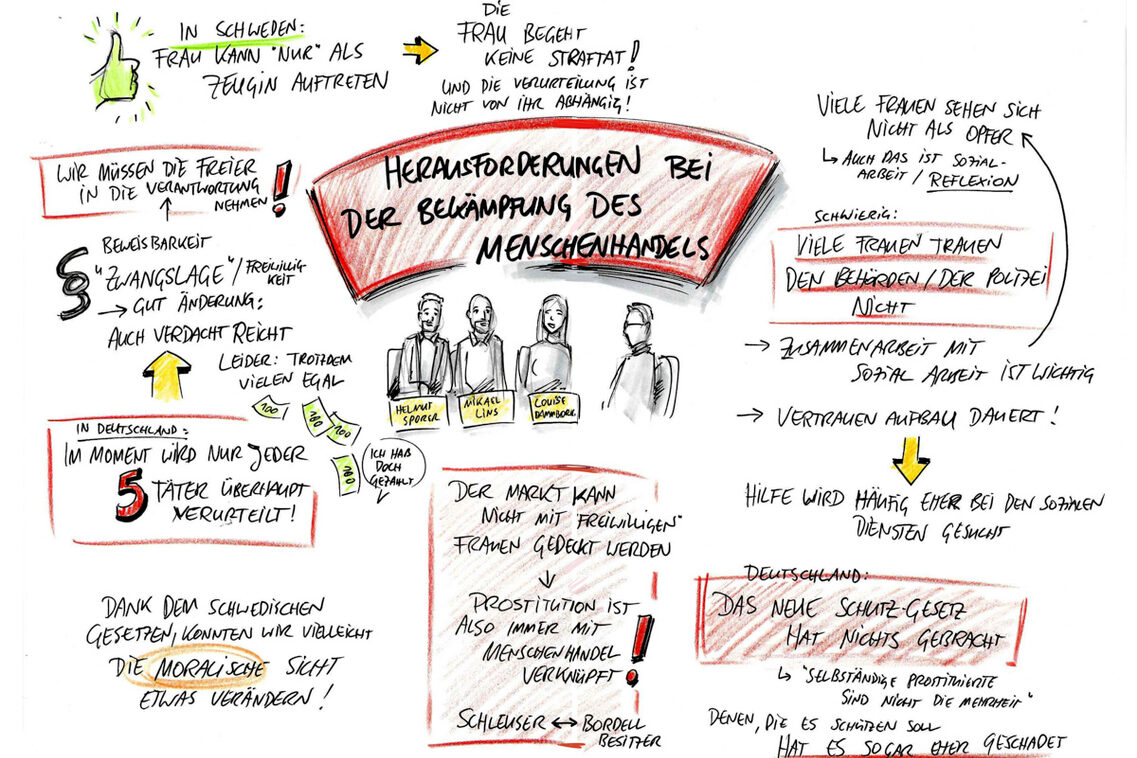 IN SCHWEDEN:
FRAU KANN "NUR" ALS
ZEUGIN AUFTRETEN
DIE
FRAU BEGEHT
KEINE STRAFTAT!
UND DIE VERURTEILUNG IST
NICHT VON IHR ABHÄNGIG!
HERAUSFORDERUNGEN BEI
DER BEKÄMPFUNG DES
MENSCHENHANDELS
WIR MÜSSEN DIE FREIER
IN DIE VERANTWORTUNG
NEHMEN!
§
BEWEISBARKEIT
"ZWANGSLAGE"/FREIWILLIG-
KEIT
→ GUT ÄNDERUNG:
AUCH VERDACHT REICHT
LEIDER: TROTZDEM
VIELEN EGAL
100
100
100
100
ICH HAB
DOCH
GEZAHLT
IN DEUTSCHLAND:
IM MOMENT WIRD NUR JEDER
5 TÄTER ÜBERHAUPT
VERURTEILT!
DANK DEM SCHWEDISCHEN
GESETZEN, KONNTEN WIR VIELLEICHT
DIE MORALISCHE SICHT
ETWAS VERÄNDERN!
HELMUT
SPORER
MIKAEL
LINS
LOUISE
DER MARKT KANN
NICHT MIT FREIWILLIGEN"
FRAUEN GEDECKT WERDEN
↓
PROSTITUTION IST
ALSO IMMER MIT
MENSCHENHANDEL
VERKNÜPFT!
SCHLEUSER ↔ BORDELL
BESITZER
VIELE FRAUEN SEHEN SICH
NICHT ALS OPFER
↳ AUCH DAS IST SOZIAL-
ARBEIT/REFLEXION
SCHWIERIG:
VIELE FRAUEN TRAUEN
DEN BEHÖRDEN/DER POLIZEI
NICHT
→ ZUSAMMENARBEIT MIT
SOZIAL ARBEIT IST WICHTIG
→ VERTRAUEN AUFBAU DAUERT!
HILFE WIRD HÄUFIG EHER BEI DEN SOZIALEN
DIENSTEN GESUCHT
DEUTSCHLAND:
DAS NEUE SCHUTZ-GESETZ
HAT NICHTS GEBRACHT
↳ "SELBSTÄNDIGE PROSTITUIERTE
SIND NICHT DIE MEHRHEIT"
DENEN, DIE ES SCHÜTZEN SOLL
HAT ES SOGAR EHER GESCHADET